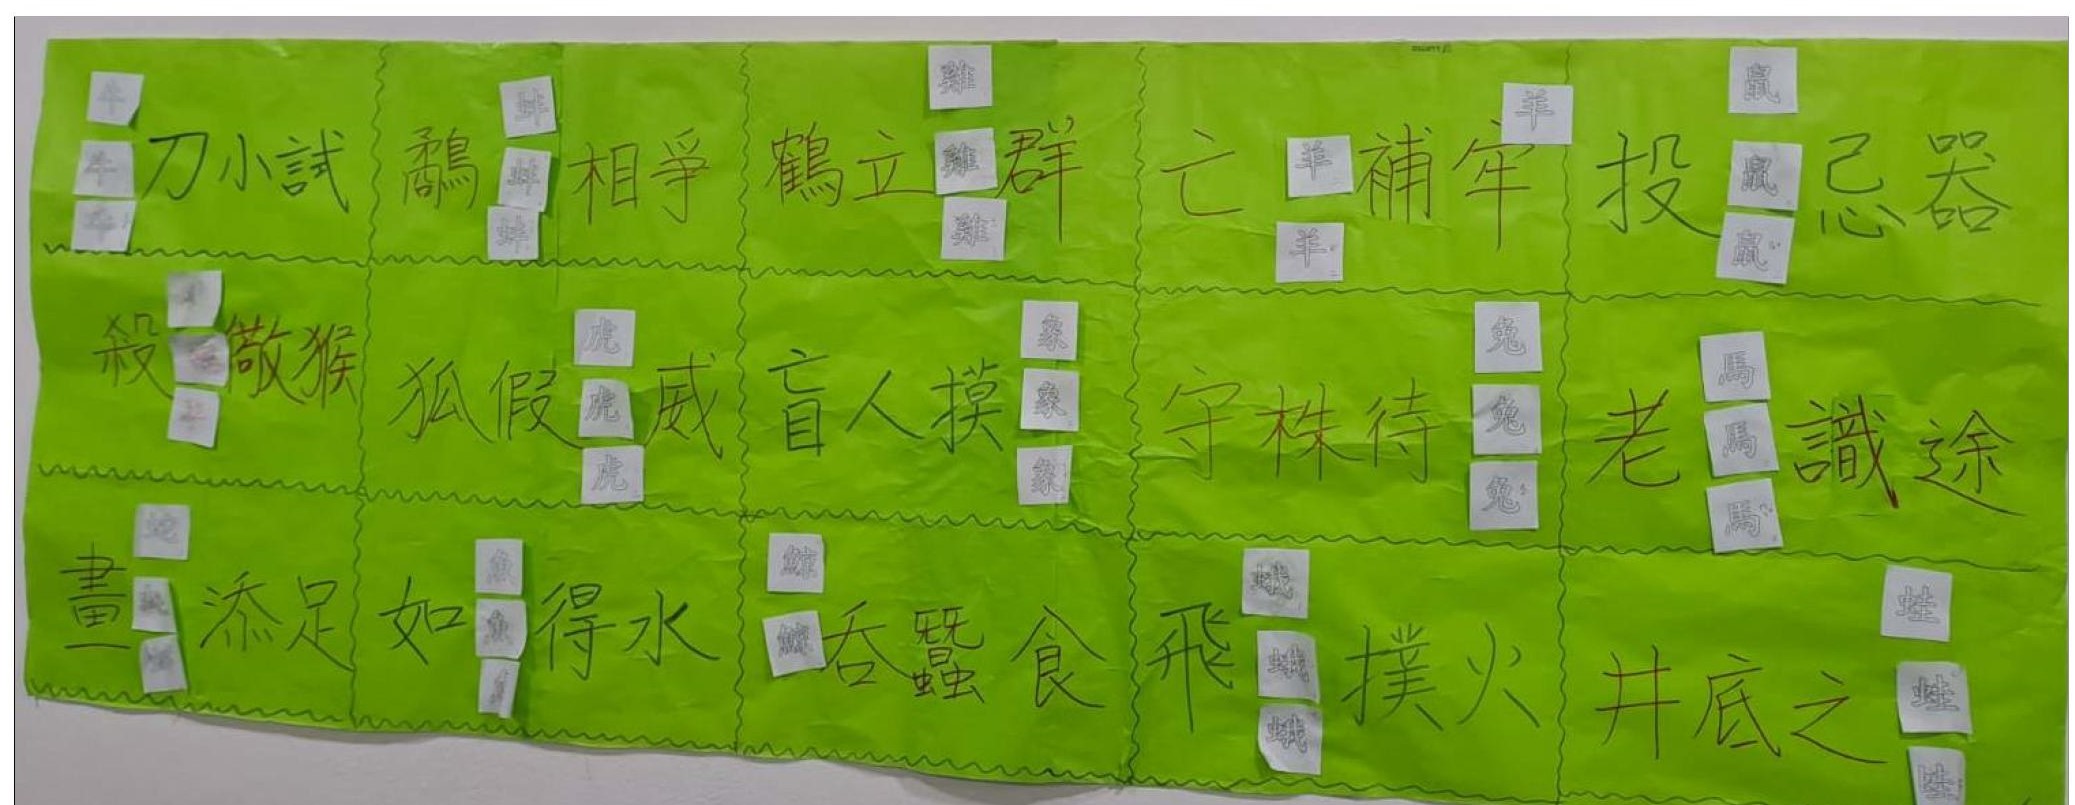 牛 蚌 雞 羊 鼠
牛刀小試 鷸蚌相爭 鶴立雞群 亡羊補牢 投鼠忌器
牛 蚌 雞 羊 鼠
虎 象 兔 馬
殺儆猴 狐假虎威 盲人摸象 守株待兔 老馬識途
虎 象 兔 馬
蛇 魚 鯨 蛾 蛙
畫蛇添足 如魚得水 鯨吞蠶食 飛蛾撲火 井底之蛙
蛾 蛙